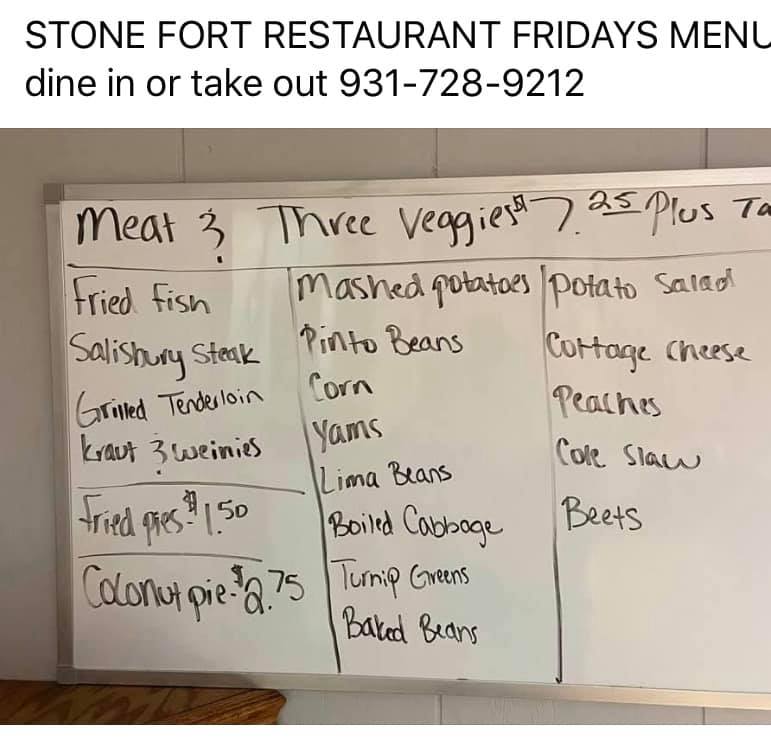 STONE FORT RESTAURANT FRIDAYS MENU
dine in or take out 931-728-9212
Meat & Three Veggies $7.25 Plus Ta
Fried fish
Salisbury Steak
Grilled Tenderloin
kraut & weinies
Fried pies-$1.50
Coconut pie-$2.75
Mashed potatoes
Pinto Beans
Corn
Yams
Lima Beans
Boiled Cabbage
Turnip Greens
Baked Beans
Potato Salad
Cottage Cheese
Peaches
Cole Slaw
Beets